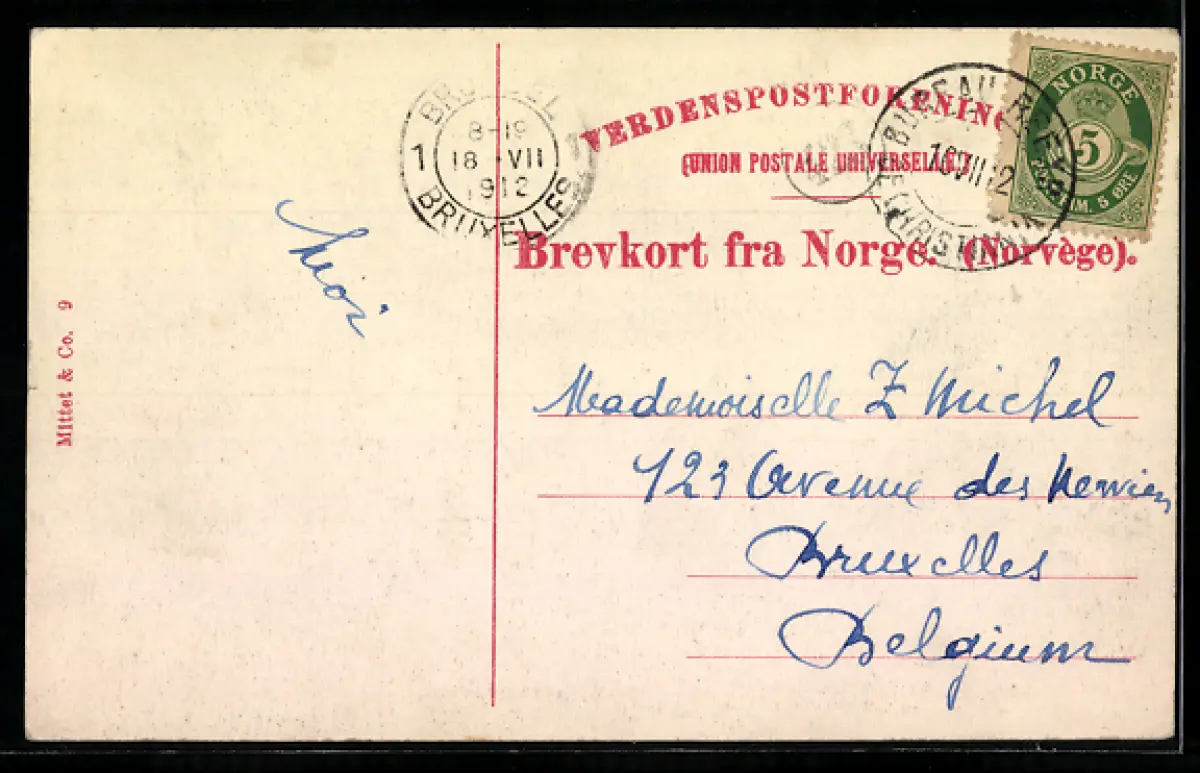 BRUSSEL
8-19
1 18 VII
1912
BRUXELLES
VERDENSPOSTFORENING
(UNION POSTALE UNIVERSELLE.)
Brevkort fra Norge. (Norvège).
BUREAU
16 VII 12
CHRISTI
NORGE
5
M. 5 ØRE
Mittet & Co. 9
Mademoiselle Z Michel
123 Avenue des
Bruxelles
Belgium